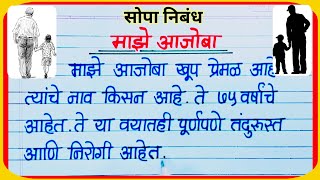 सोपा निबंध
माझे आजोबा
माझे आजोबा खूप प्रेमळ आहे
त्यांचे नाव किसन आहे. ते ७५ वर्षाचे
आहेत. ते या वयातही पूर्णपणे तंदुरुस्त
आणि निरोगी आहेत.